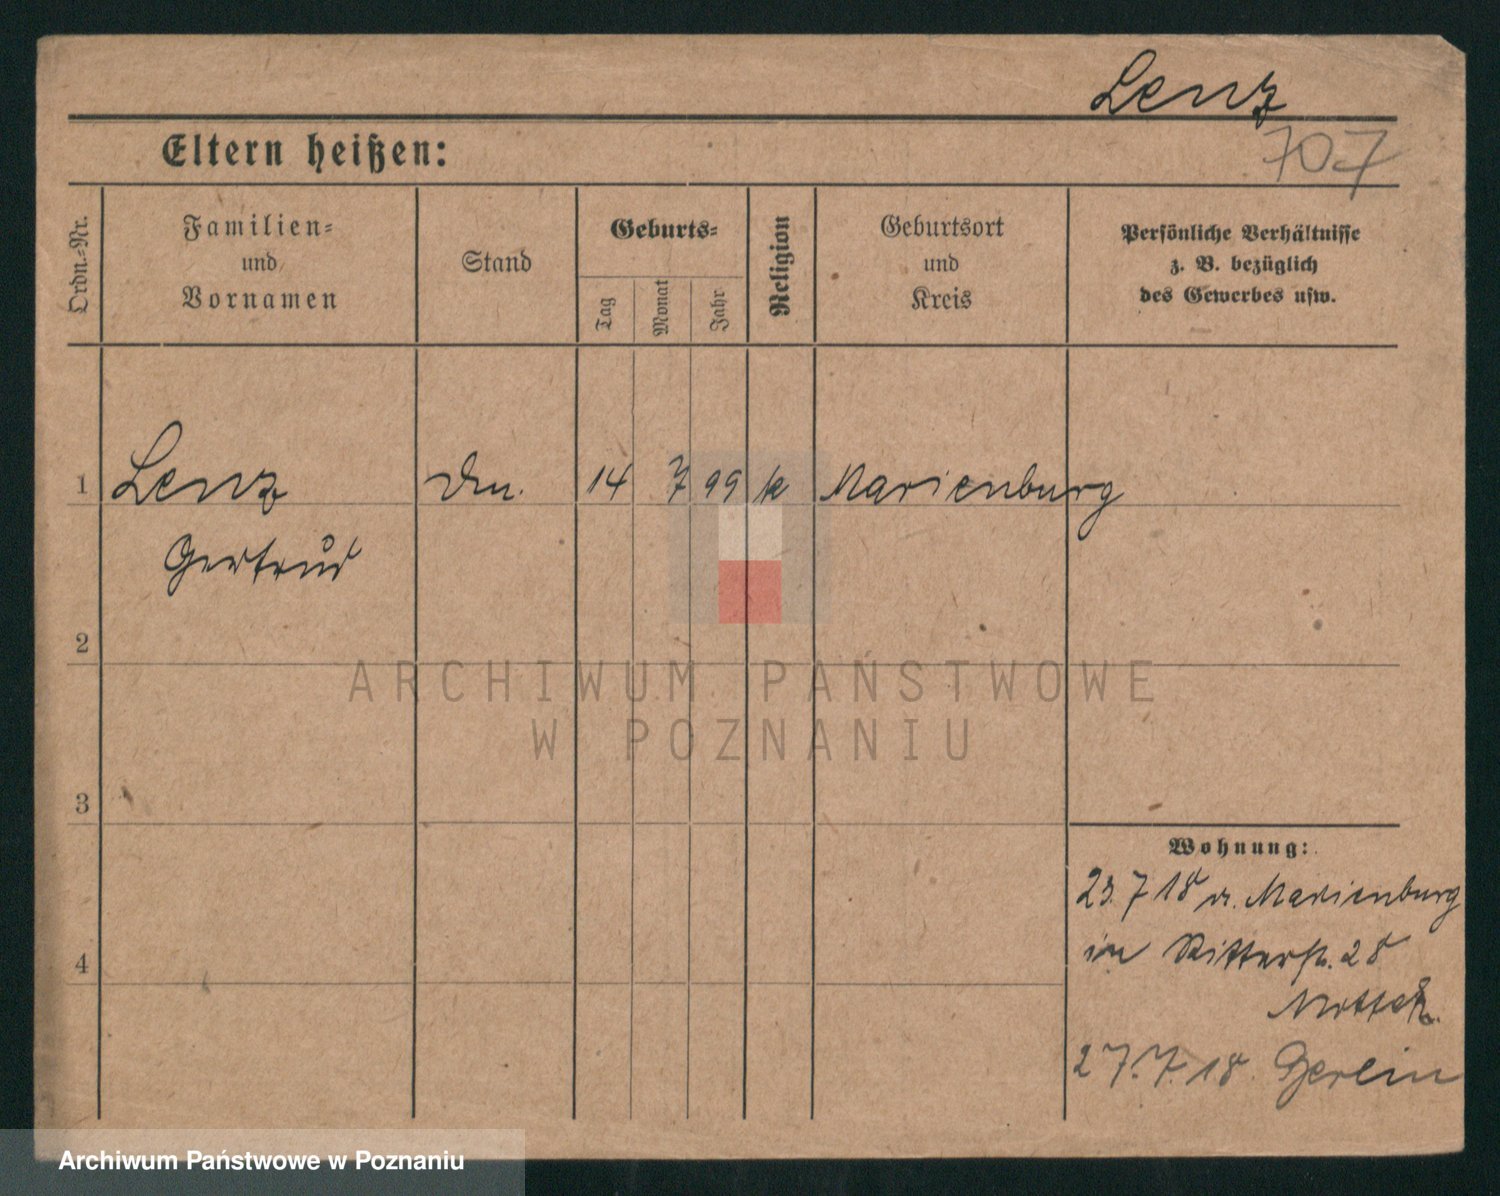 Lenz
707
Eltern heißen:
Ordn.-Nr.
Familien-
und
Vornamen
Stand
Geburts-
Tag
Monat
Jahr
Religion
Geburtsort
und
Kreis
Persönliche Verhältnisse
z. B. bezüglich
des Gewerbes usw.
1 Lenz 14 7 99 k Marienburg
Gertrud
2
3
4
Wohnung:
23. 7 18 v. Marienburg
in Ritterstr. 28
27. 7. 18
ARCHIWUM PAŃSTWOWE
W POZNANIU
Archiwum Państwowe w Poznaniu